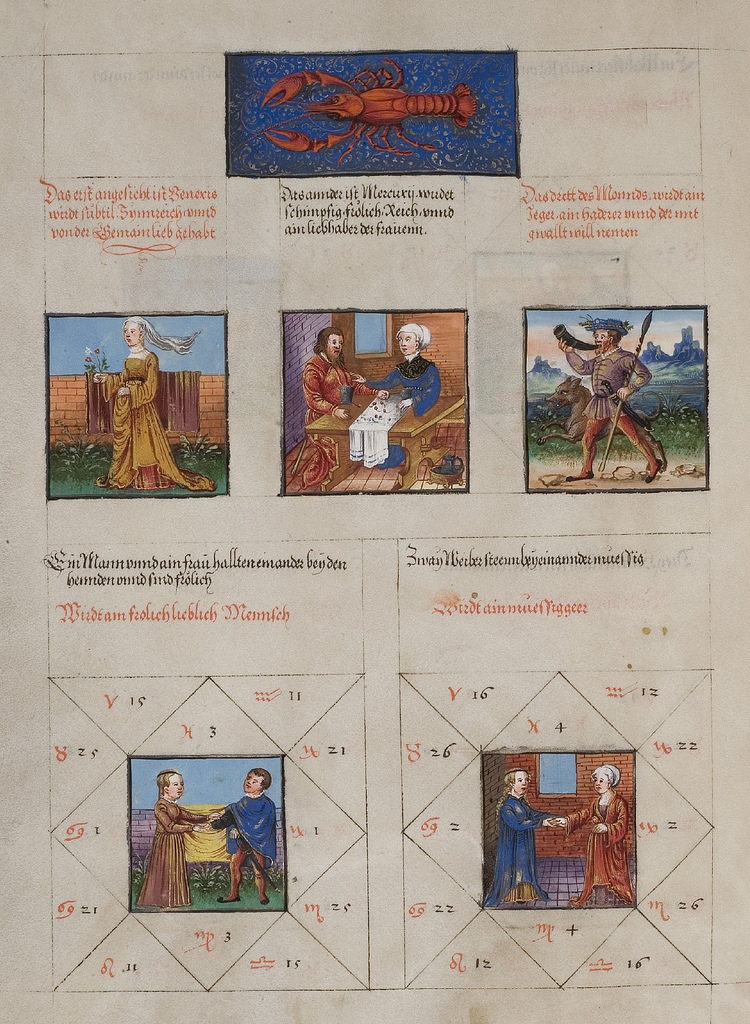 Das erst angesicht ist Veneris
wirdt subtil. Synnreich vnnd
von der Gemain lieb gehabt
Das annder ist Mercurij. wirdet
schimpfig. frölich. Reich. vnnd
ain liebhaber der frauenn.
Das dritt des Monnds. wirdt ain
Jeger. ain haderer vnnd der mit
gwallt will nemen
Ein Mann vnnd ain frau hallten einander bey den
hennden vnnd sind frölich
Wirdt ain frolich lieblich Mennsch
Zway Weiber steenn bey einannder muessig
Wirdt ain muessiggeer
♈ 15 ♒ 11
♓ 3
♉ 25 ♑ 21
♋ 1 ♑ 1
♋ 21 ♏ 25
♍ 3
♌ 11 ♎ 15
♈ 16 ♒ 12
♓ 4
♉ 26 ♑ 22
♋ 2 ♑ 2
♋ 22 ♏ 26
♍ 4
♌ 12 ♎ 16